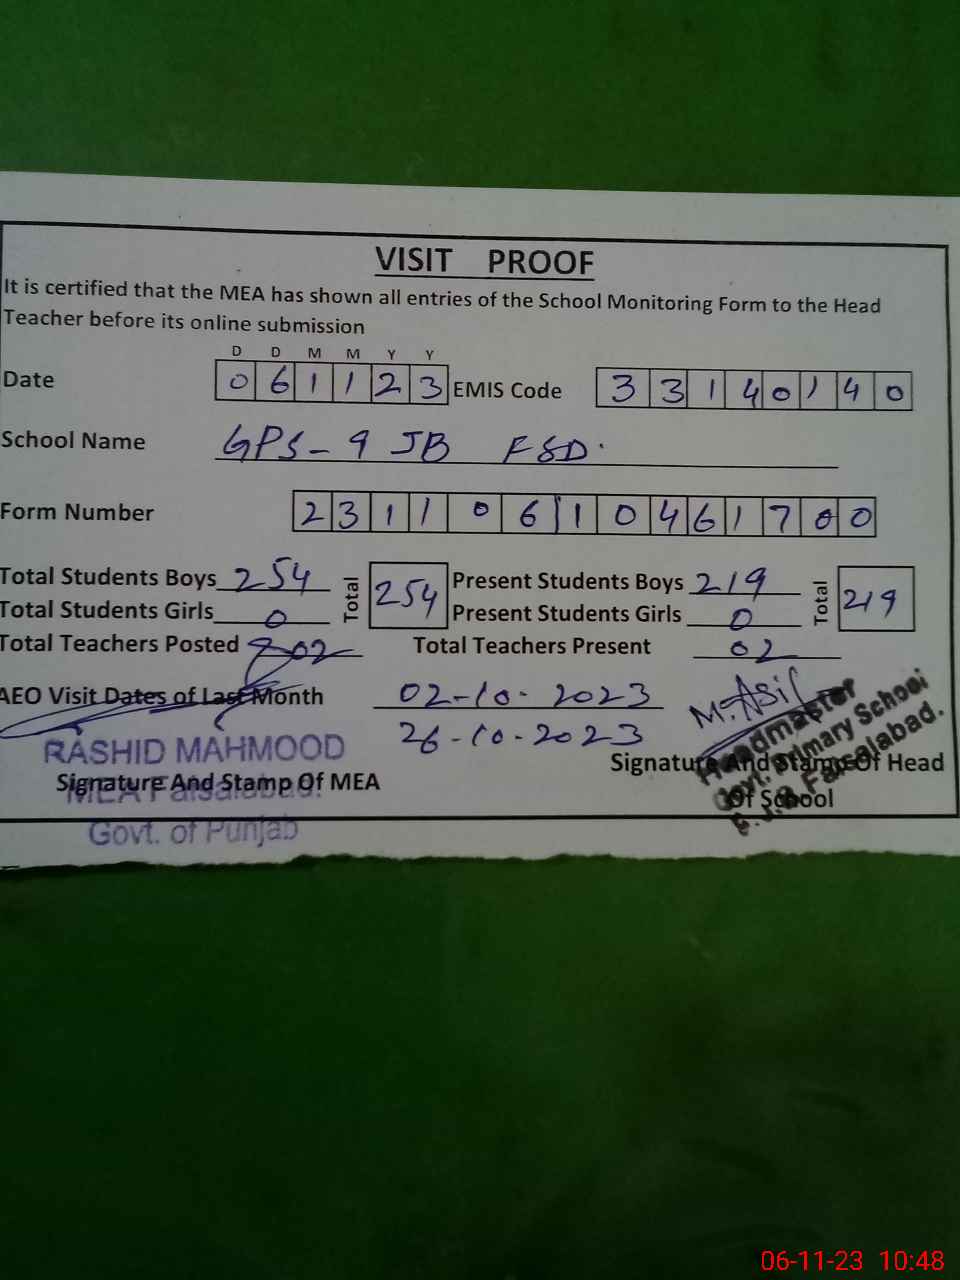 VISIT PROOF
It is certified that the MEA has shown all entries of the School Monitoring Form to the Head
Teacher before its online submission
D D M M Y Y
Date 0 6 1 1 2 3 EMIS Code 3 3 1 4 0 1 4 0
School Name GPS - 9 JB FSD.
Form Number 2 3 1 1 0 6 1 0 4 6 1 7 0 0
Total Students Boys 254 Total 254 Present Students Boys 219 Total 219
Total Students Girls 0 Present Students Girls 0
Total Teachers Posted 02 Total Teachers Present 02
AEO Visit Dates of Last Month 02-10-2023
26-10-2023
M. Asif
RASHID MAHMOOD
MEA Faisalabad.
Govt. of Punjab
Signature And Stamp Of MEA
Signature And Stamp Of Head
Of School
Headmaster
Govt. Primary School
J.B. Faisalabad.
06-11-23 10:48